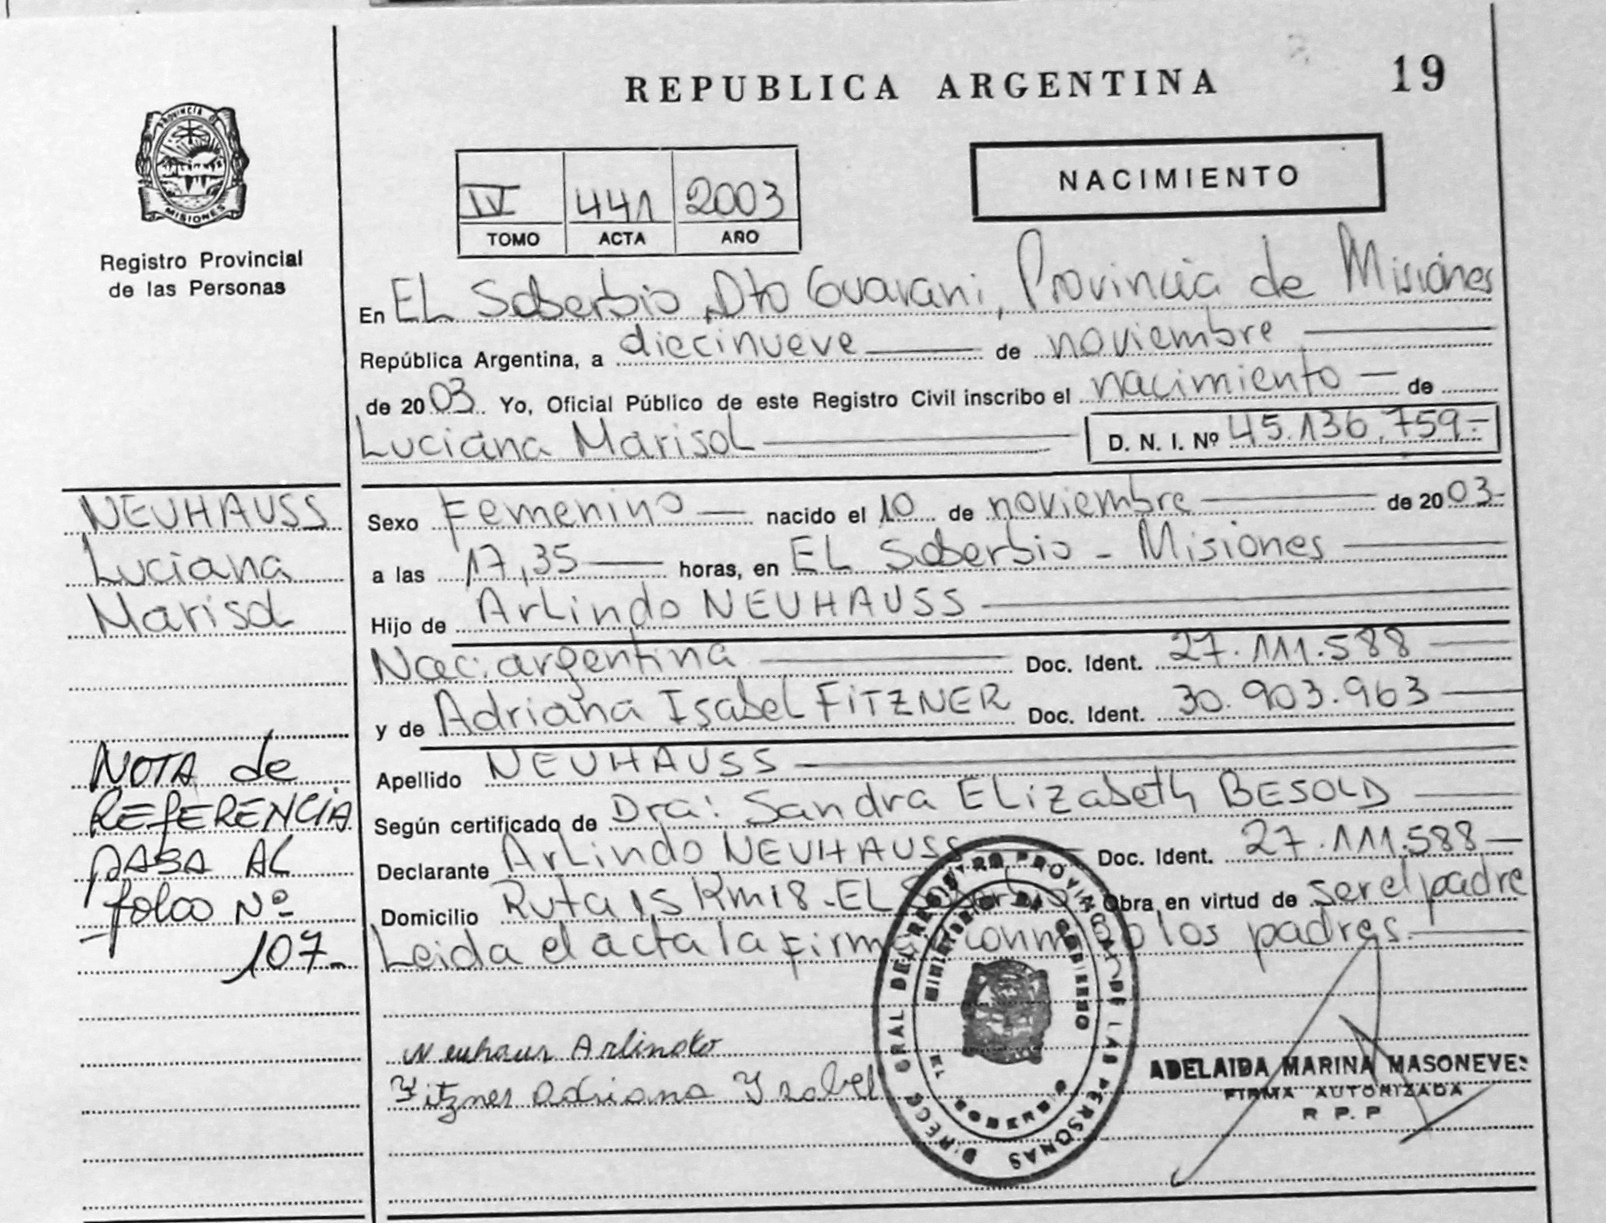 REPUBLICA ARGENTINA
19
PROVINCIA D
MISIONES
Registro Provincial
de las Personas
IV 441 2003
TOMO ACTA AÑO
NACIMIENTO
En EL Soberbio, Dto Guarani, Provincia de Misiones
República Argentina, a diecinueve de noviembre
de 2003. Yo, Oficial Público de este Registro Civil inscribo el nacimiento - de
Luciana Marisol D. N. I. Nº 45.136.759.-
NEUHAUSS
Luciana
Marisol
Sexo Femenino nacido el 10 de noviembre de 2003.-
a las 17,35 horas, en EL Soberbio - Misiones
Hijo de Arlindo NEUHAUSS
Nac: argentina Doc. Ident. 27.111.588
y de Adriana Isabel FITZNER Doc. Ident. 30.903.963
Apellido NEUHAUSS
Según certificado de Dra: Sandra Elizabeth BESOLD
Declarante Arlindo NEUHAUSS Doc. Ident. 27.111.588
Domicilio Ruta 15 Km 18 - EL Obra en virtud de ser el padre
Leida el acta la firman conmigo los padres.
NOTA de
REFERENCIA
PASA AL
folio Nº
107-
Neuhaus Arlindo
Fitzner Adriana Ysabel
DIRECC GRAL DEL REGISTRO PROVINCIAL DE LAS PERSONAS
MINISTERIO DE GOBIERNO
ADELAIDA MARINA MASONEVES
FIRMA AUTORIZADA
R P P